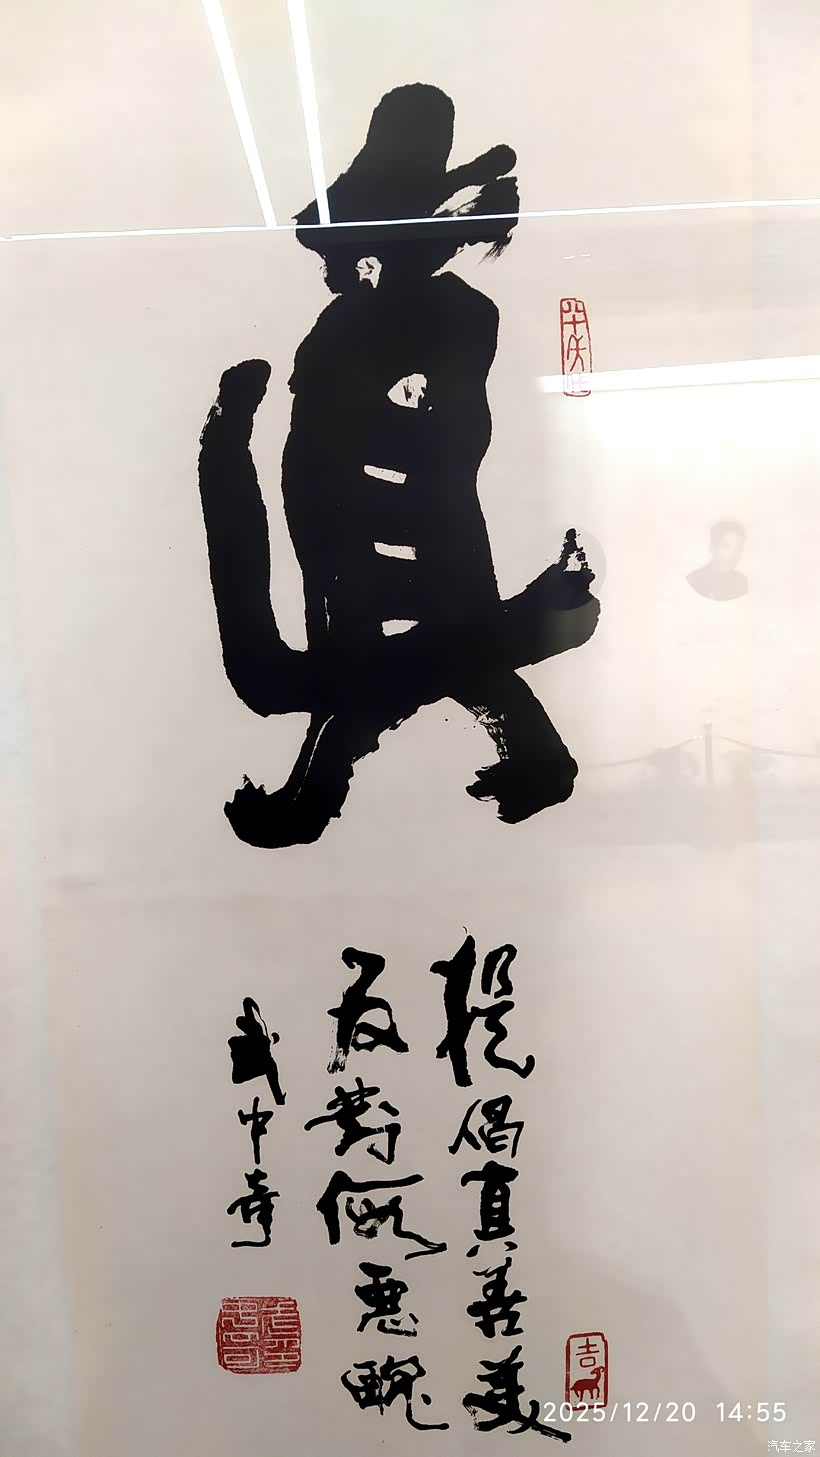 真
提倡真善美
反對假惡醜
武中奇
吉
2025/12/20 14:55
汽车之家